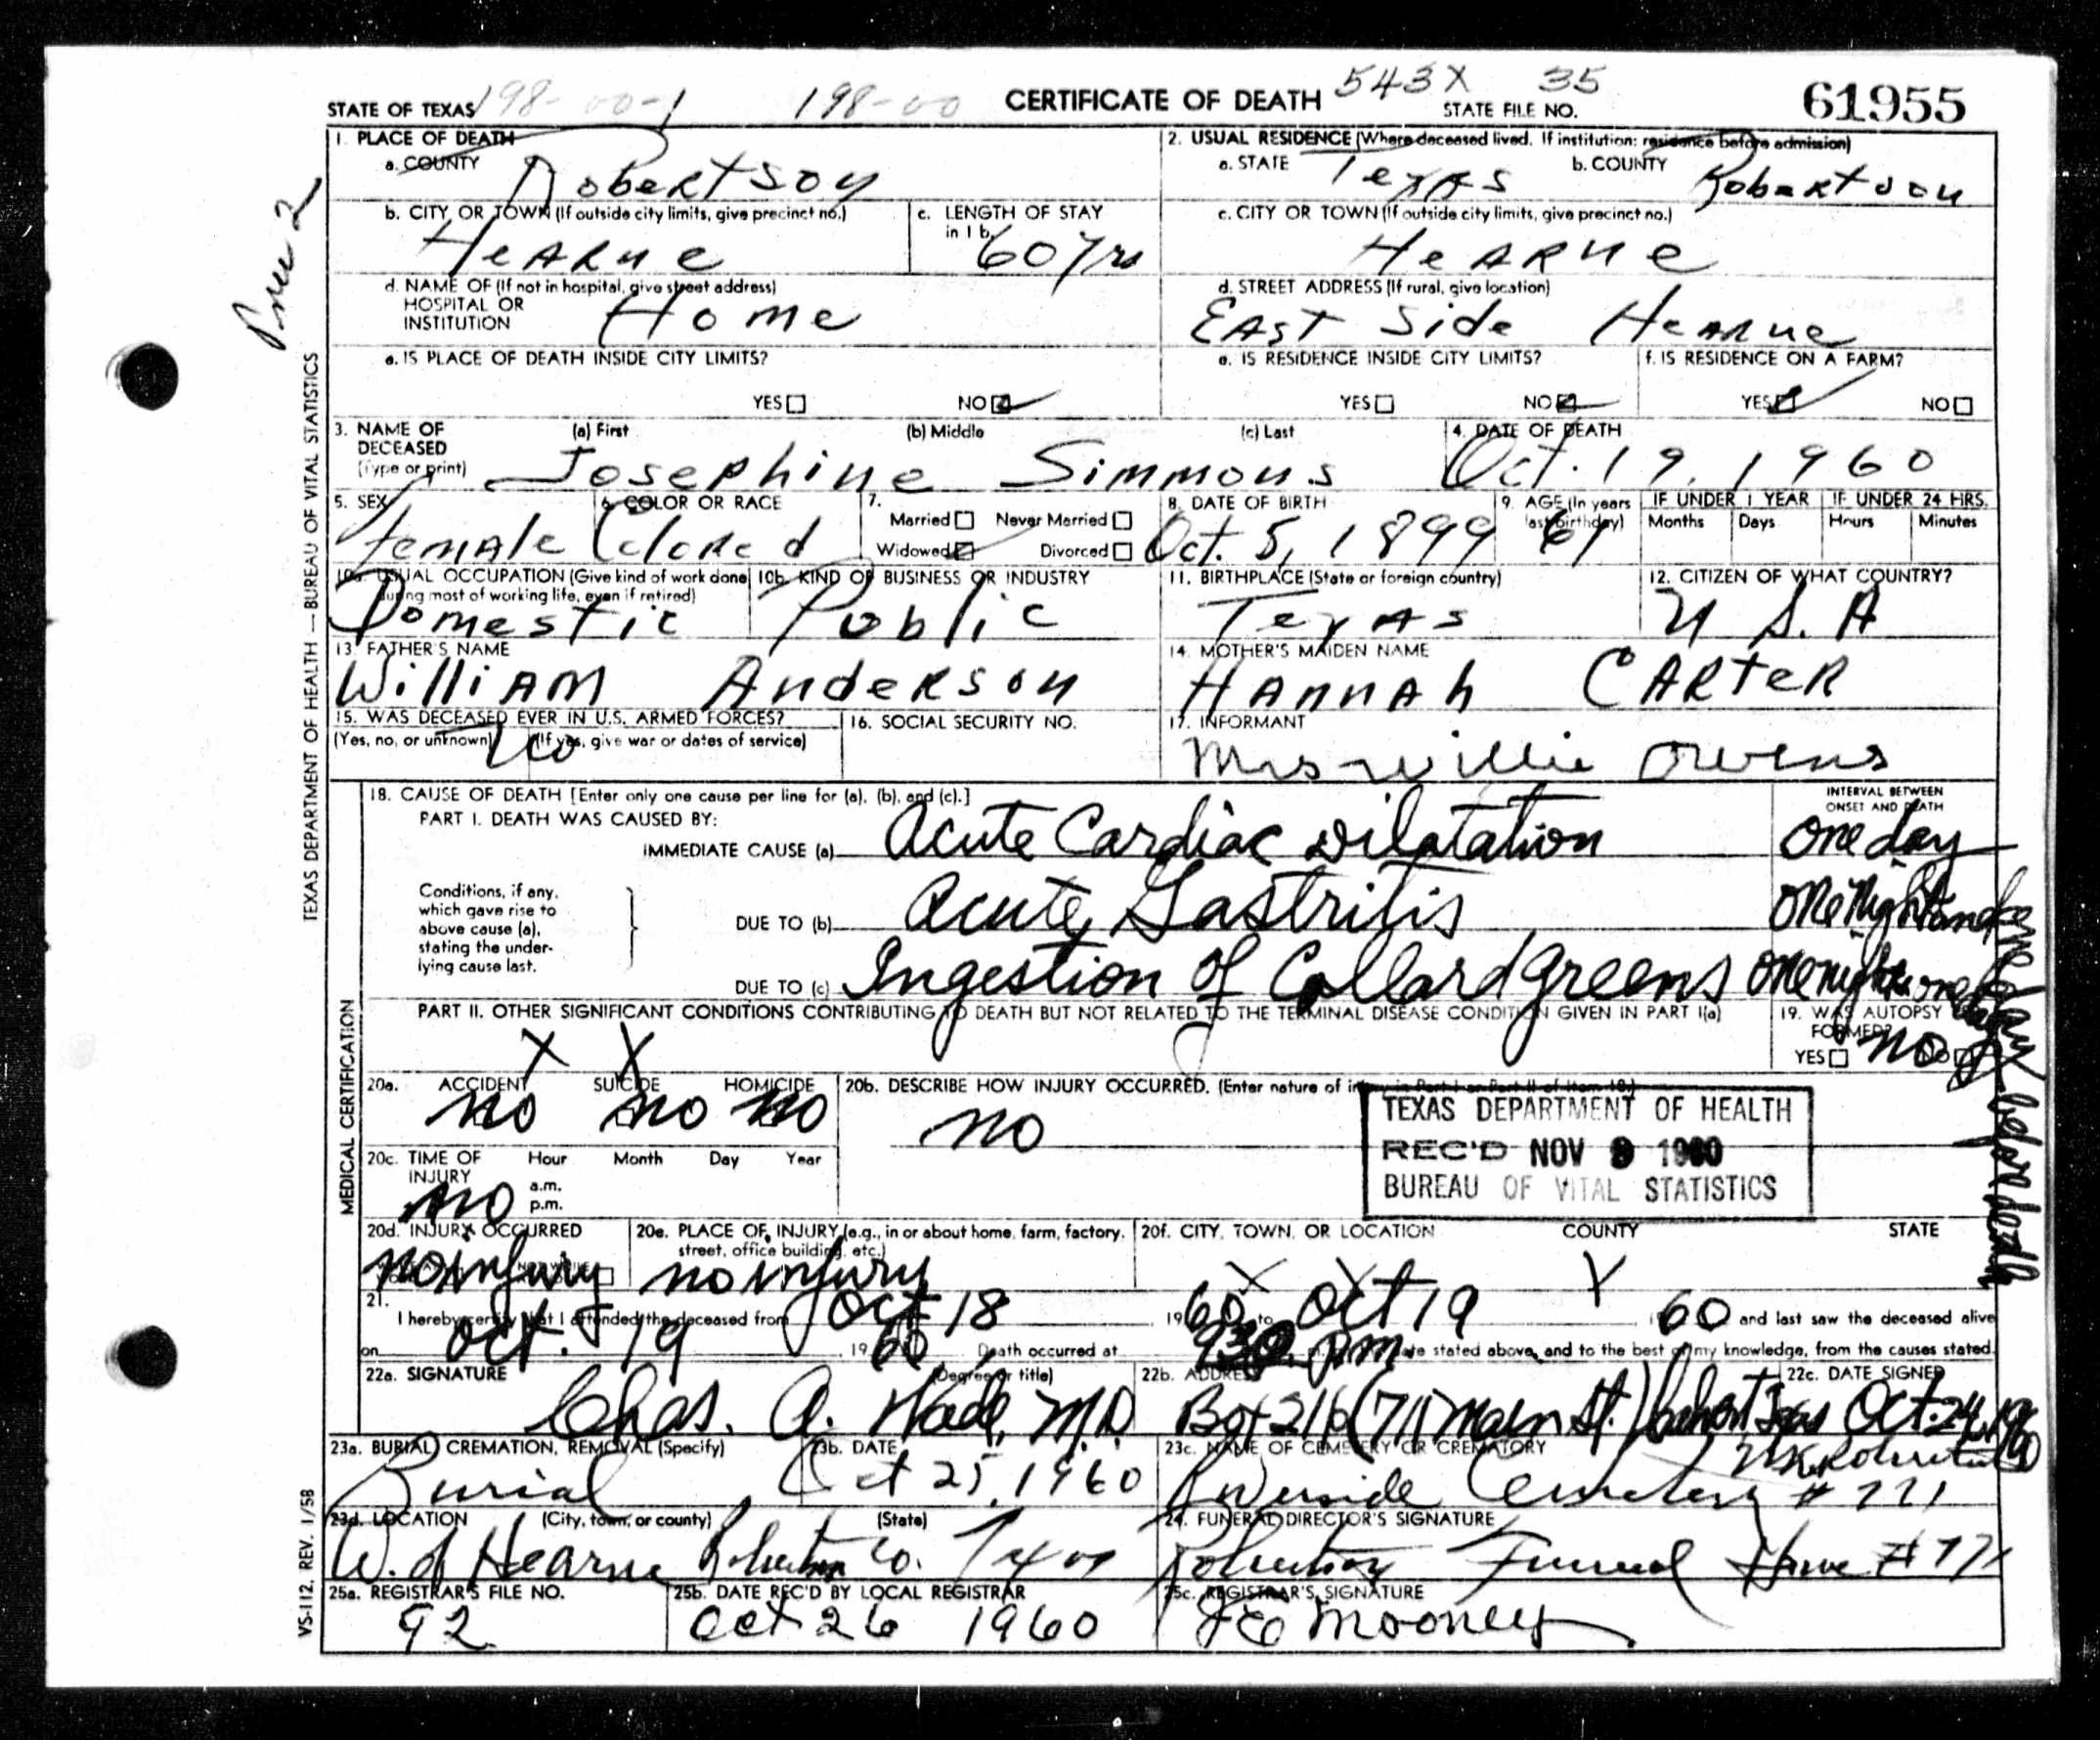 STATE OF TEXAS 198-00-1 198-00 CERTIFICATE OF DEATH 543X 35 STATE FILE NO. 61955
1. PLACE OF DEATH
a. COUNTY Robertson
2. USUAL RESIDENCE (Where deceased lived. If institution: residence before admission)
a. STATE Texas b. COUNTY Robertson
b. CITY OR TOWN (If outside city limits, give precinct no.) Hearne
c. LENGTH OF STAY in 1 b. 60 yrs
c. CITY OR TOWN (If outside city limits, give precinct no.) Hearne
d. NAME OF (If not in hospital, give street address) HOSPITAL OR INSTITUTION Home
d. STREET ADDRESS (If rural, give location) EAST Side Hearne
e. IS PLACE OF DEATH INSIDE CITY LIMITS? YES NO
e. IS RESIDENCE INSIDE CITY LIMITS? YES NO
f. IS RESIDENCE ON A FARM? YES NO
3. NAME OF DECEASED (Type or print) (a) First (b) Middle (c) Last
Josephine Simmons
4. DATE OF DEATH Oct. 19, 1960
5. SEX Female
6. COLOR OR RACE Colored
7. Married Never Married Widowed Divorced
8. DATE OF BIRTH Oct. 5, 1899
9. AGE (In years last birthday) 61
IF UNDER 1 YEAR Months Days
IF UNDER 24 HRS. Hours Minutes
10a. USUAL OCCUPATION (Give kind of work done during most of working life, even if retired) Domestic
10b. KIND OF BUSINESS OR INDUSTRY Public
11. BIRTHPLACE (State or foreign country) Texas
12. CITIZEN OF WHAT COUNTRY? U S. A
13. FATHER'S NAME William Anderson
14. MOTHER'S MAIDEN NAME HANNAh CARTER
15. WAS DECEASED EVER IN U.S. ARMED FORCES? (Yes, no, or unknown) (If yes, give war or dates of service) No
16. SOCIAL SECURITY NO.
17. INFORMANT Mrs Willie Owens
18. CAUSE OF DEATH [Enter only one cause per line for (a), (b), and (c).]
INTERVAL BETWEEN ONSET AND DEATH
PART I. DEATH WAS CAUSED BY:
IMMEDIATE CAUSE (a) Acute Cardiac Dilatation one day
Conditions, if any, which gave rise to above cause (a), stating the underlying cause last.
DUE TO (b) Acute Gastritis one night and one day before death
DUE TO (c) Ingestion of Collard greens one night & one day
PART II. OTHER SIGNIFICANT CONDITIONS CONTRIBUTING TO DEATH BUT NOT RELATED TO THE TERMINAL DISEASE CONDITION GIVEN IN PART I(a)
X X
19. WAS AUTOPSY PERFORMED? YES NO no
20a. ACCIDENT SUICIDE HOMICIDE
no no no
20b. DESCRIBE HOW INJURY OCCURRED. (Enter nature of injury in Part I or Part II of item 18.)
no
TEXAS DEPARTMENT OF HEALTH
REC'D NOV 9 1960
BUREAU OF VITAL STATISTICS
20c. TIME OF INJURY Hour Month Day Year
a.m.
p.m.
no
20d. INJURY OCCURRED no injury
20e. PLACE OF INJURY (e.g., in or about home, farm, factory, street, office building, etc.) no injury
20f. CITY, TOWN, OR LOCATION COUNTY STATE
X X X
21. I hereby certify that I attended the deceased from Oct 18 1960 to Oct 19 1960 and last saw the deceased alive
on Oct. 19 1960. Death occurred at 930 pm. date stated above, and to the best of my knowledge, from the causes stated.
22a. SIGNATURE (Degree or title) Chas. A. Wade, M.D.
22b. ADDRESS Box 216 (711 Main St.) Texas
22c. DATE SIGNED Oct. 24, 1960
23a. BURIAL, CREMATION, REMOVAL (Specify) Burial
23b. DATE Oct 25, 1960
23c. NAME OF CEMETERY OR CREMATORY Riverside Cemetery
23d. LOCATION (City, town, or county) (State) W. of Hearne Robertson Co. Texas
24. FUNERAL DIRECTOR'S SIGNATURE Robertson Funeral Home
25a. REGISTRAR'S FILE NO. 92
25b. DATE REC'D BY LOCAL REGISTRAR Oct 26 1960
25c. REGISTRAR'S SIGNATURE Mooney
TEXAS DEPARTMENT OF HEALTH — BUREAU OF VITAL STATISTICS
MEDICAL CERTIFICATION
VS-112, REV. 1/58